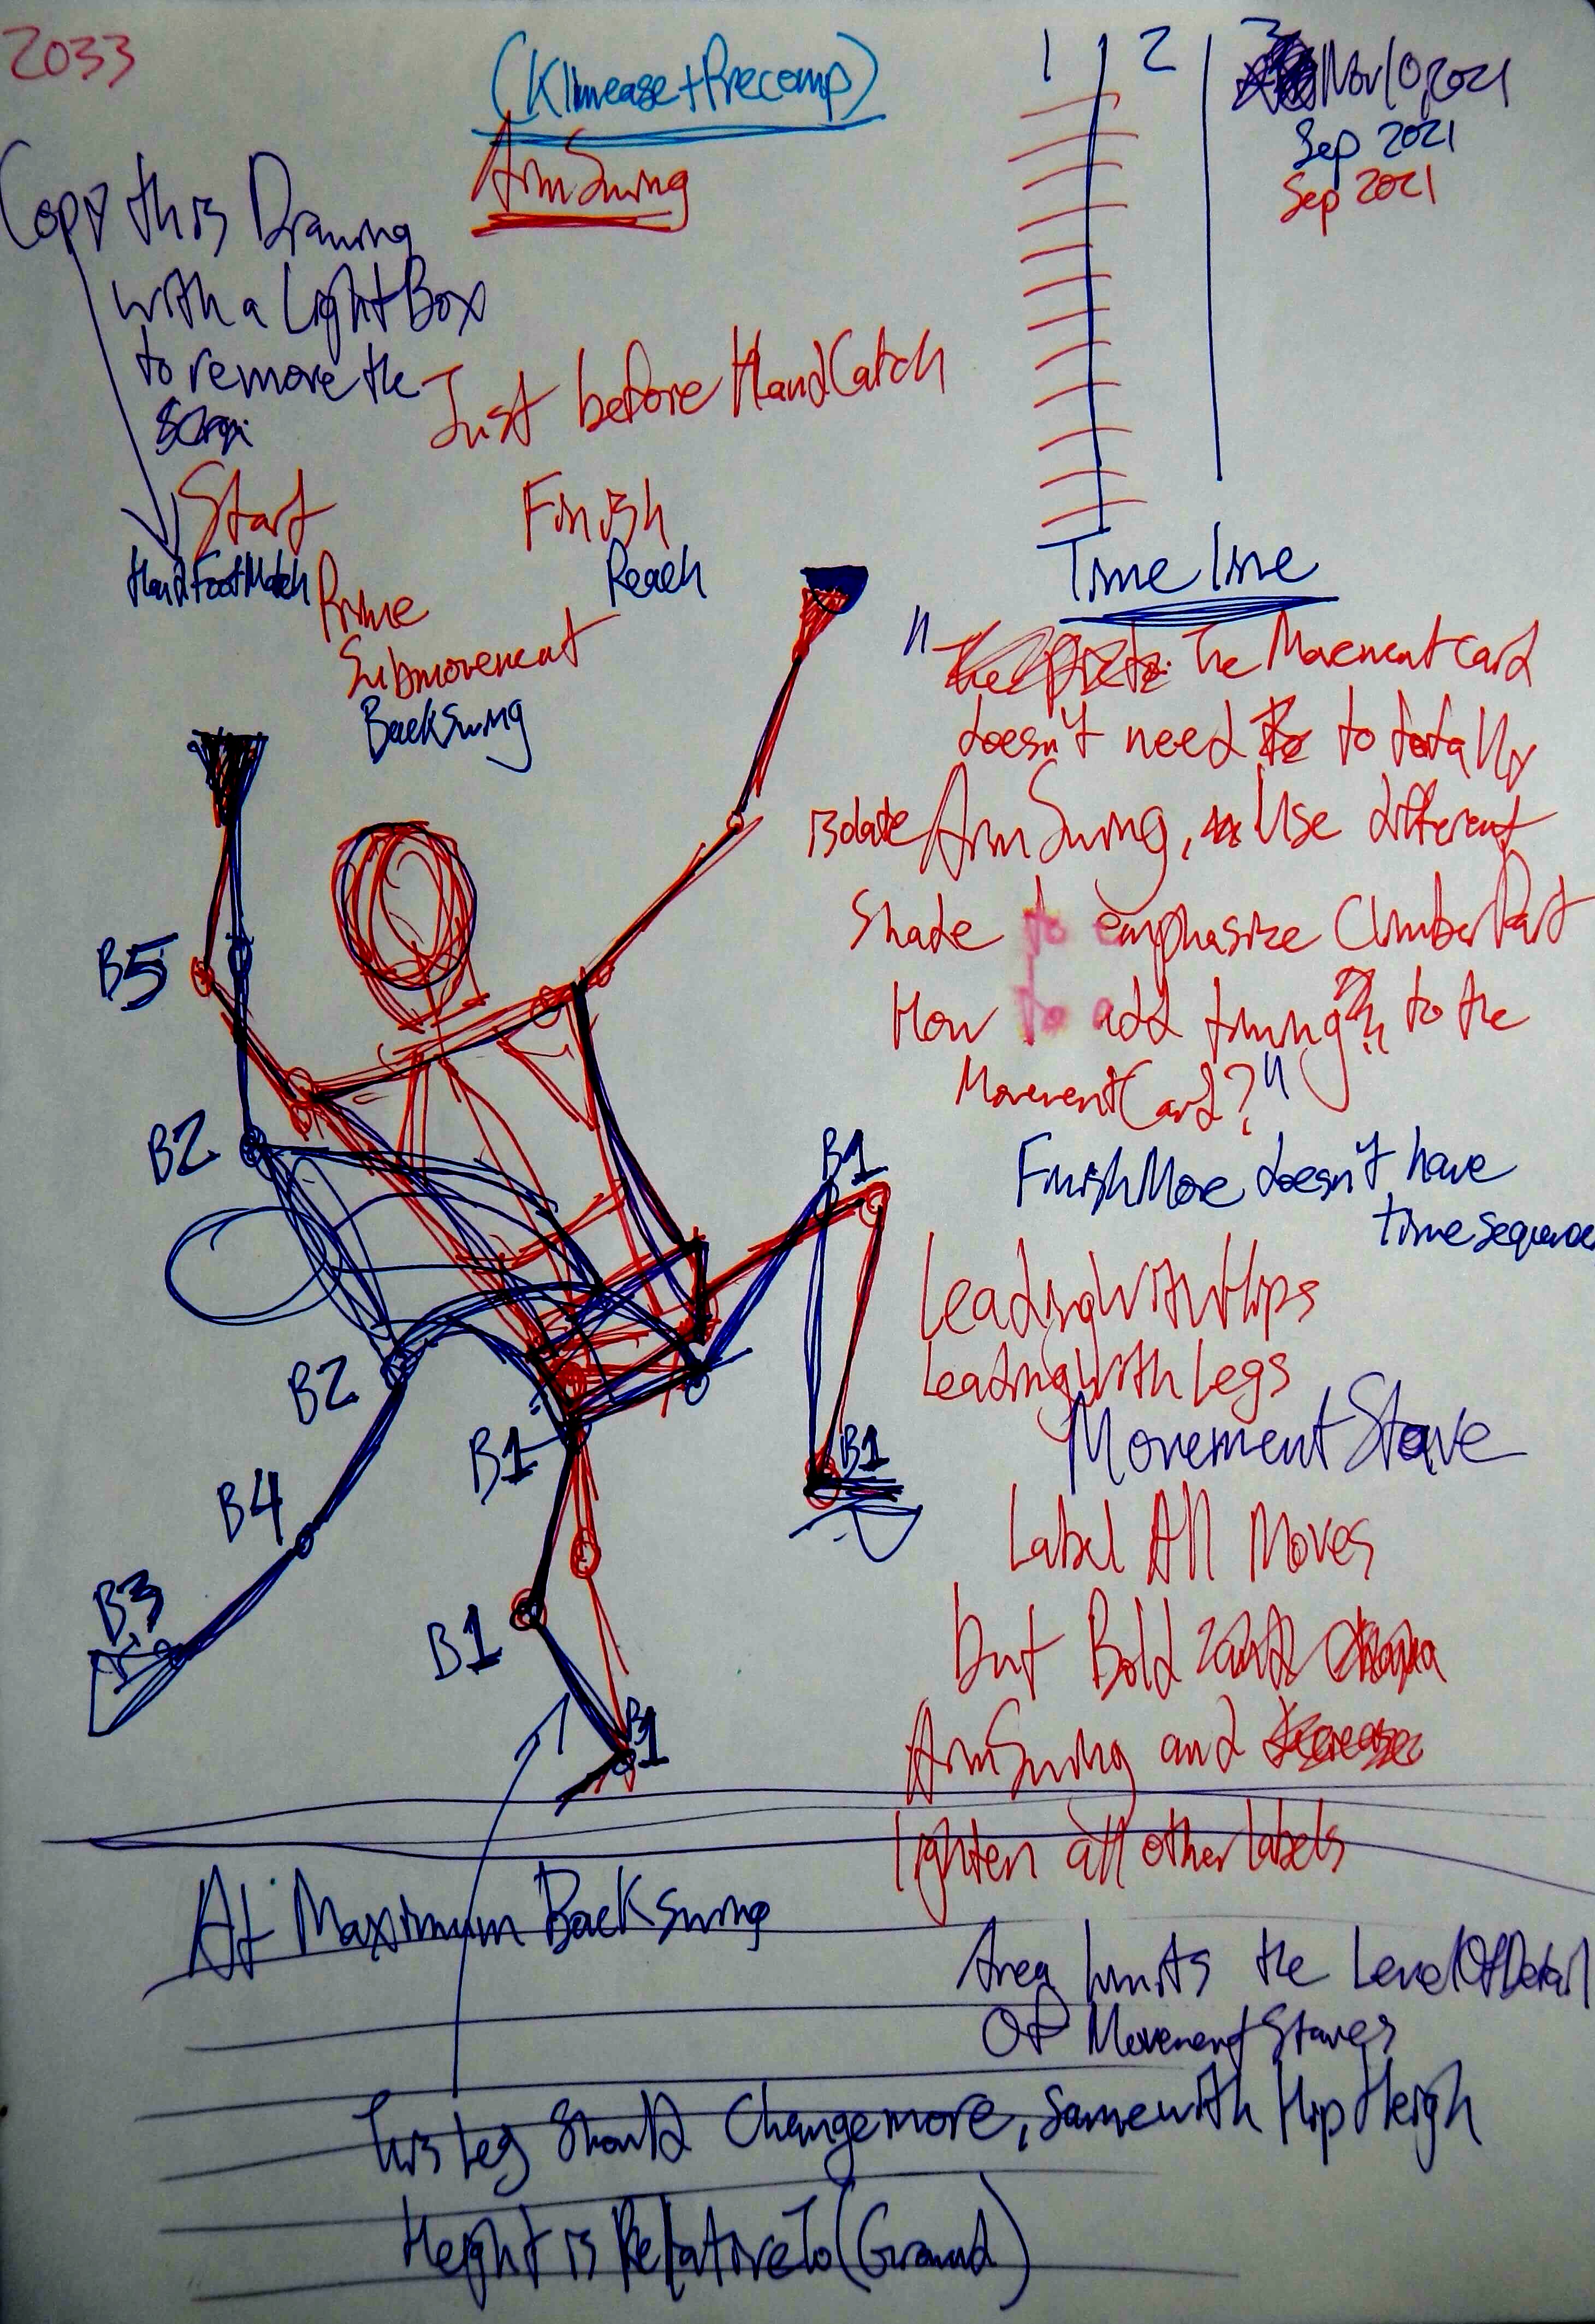 2033
(Klimease+Precomp)
ArmSwing
1 2 3
Nov 10, 2021
Sep 2021
Sep 2021
Copy this Drawing
with a LightBox
to remove the
Just before HandCatch
Start
HandFootMatch
Finish
Reach
Prime
Submovement
BackSwing
Time line
" The MovementCard
doesn't need to totally
isolate ArmSwing, Use different
Shade to emphasize ClimberPart
How to add timing to the
MovementCard?"
FinishMove doesn't have
time sequence
LeadingWithHips
LeadingWithLegs
MovementStave
Label All Moves
but Bold
ArmSwing and
lighten all other labels
B5
B2
B1
B2
B1
B1
B4
B3
B1
B1
At Maximum BackSwing
Area limits the LevelOfDetail
Of MovementStaves
This Leg Should Change more, same with HipHeigh
Height is RelativeTo(Ground)